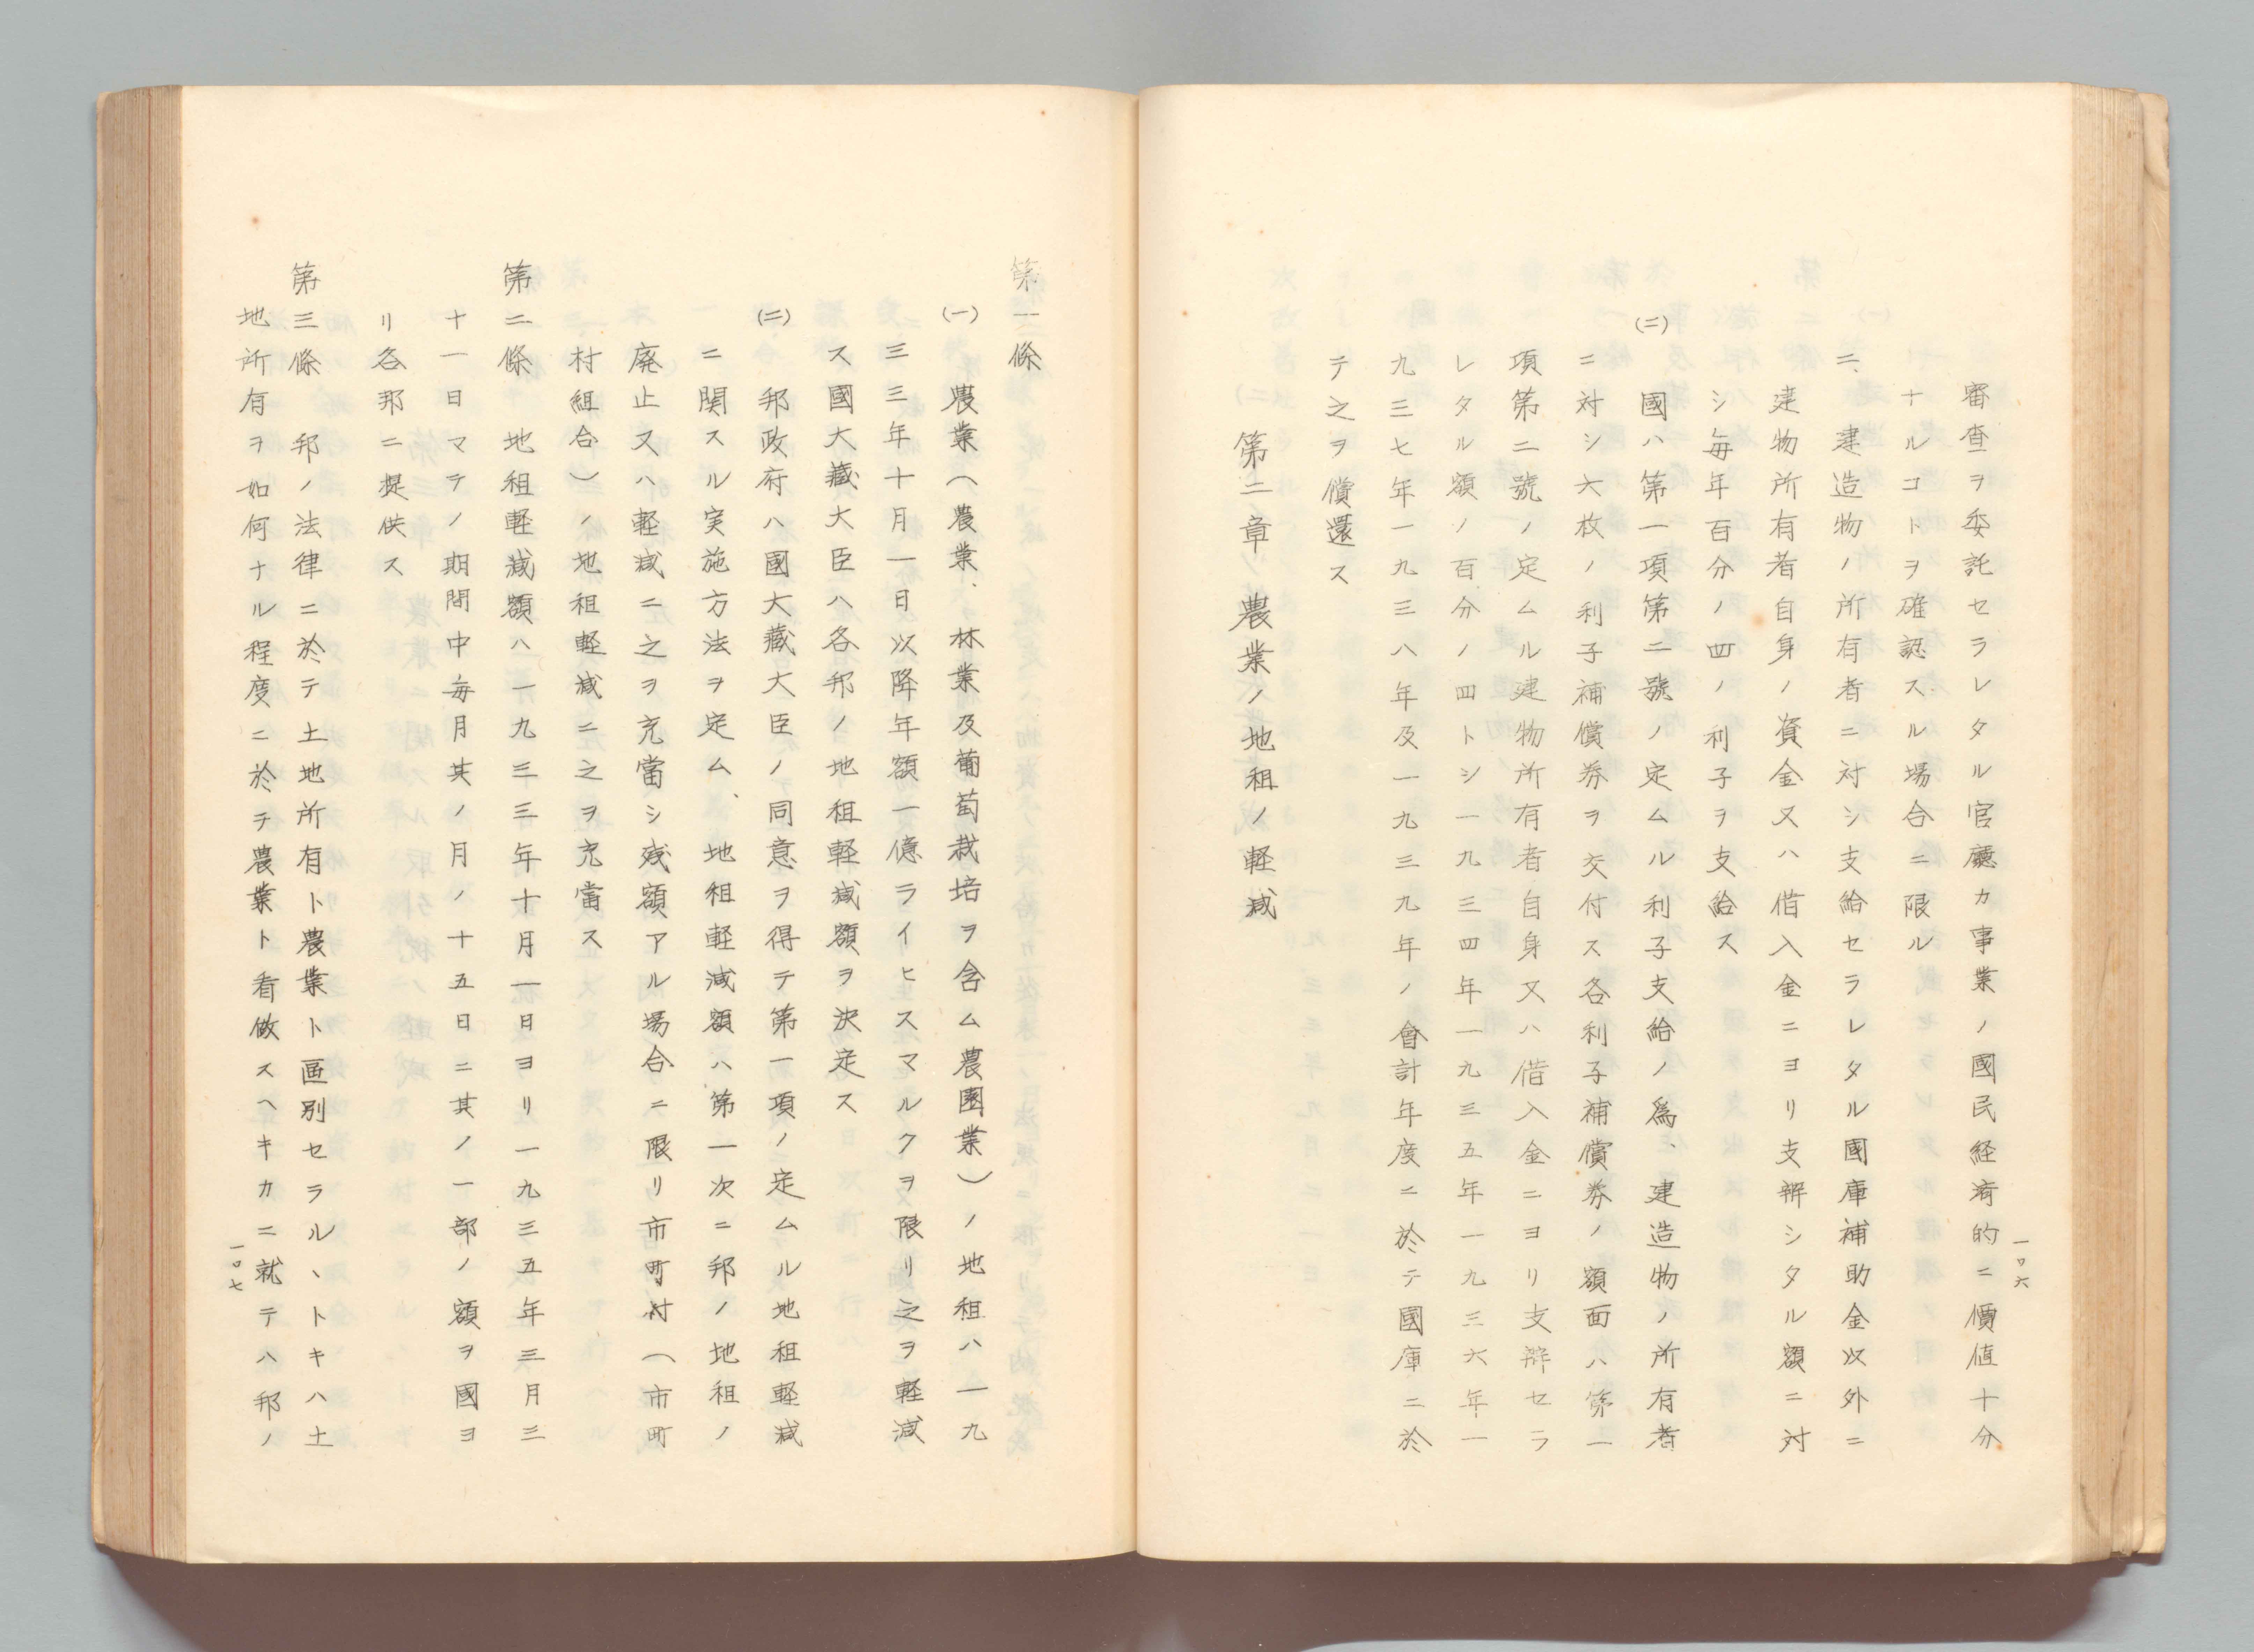 審査ヲ委託セラレタル官廳カ事業ノ國民経済的ニ價値十分
ナルコトヲ確認スル場合ニ限ル
二、建造物ノ所有者ニ対シ支給セラレタル國庫補助金以外ニ
建物所有者自身ノ資金又ハ借入金ニヨリ支辨シタル額ニ対
シ毎年百分ノ四ノ利子ヲ支給ス
(二)國ハ第一項第二號ノ定ムル利子支給ノ爲、建造物ノ所有者
ニ対シ六枚ノ利子補償券ヲ交付ス各利子補償券ノ額面ハ第一
項第二號ノ定ムル建物所有者自身又ハ借入金ニヨリ支辨セラ
レタル額ノ百分ノ四トシ一九三四年一九三五年一九三六年一
九三七年一九三八年及一九三九年ノ會計年度ニ於テ國庫ニ於
テ之ヲ償還ス
第二章 農業ノ地租ノ軽減
一〇六
第一條
(一)農業(農業、林業及葡萄栽培ヲ含ム農園業)ノ地租ハ一九
三三年十月一日以降年額一億ライヒスマルクヲ限リ之ヲ軽減
ス國大藏大臣ハ各邦ノ地租軽減額ヲ決定ス
(二)邦政府ハ國大藏大臣ノ同意ヲ得テ第一項ノ定ムル地租軽減
ニ関スル実施方法ヲ定ム、地租軽減額ハ第一次ニ邦ノ地租ノ
廃止又ハ軽減ニ之ヲ充當シ残額アル場合ニ限リ市町村(市町
村組合)ノ地租軽減ニ之ヲ充當ス
第二條 地租軽減額ハ一九三三年十月一日ヨリ一九三五年三月三
十一日マテノ期間中毎月其ノ月ノ十五日ニ其ノ一部ノ額ヲ國ヨ
リ各邦ニ提供ス
第三條 邦ノ法律ニ於テ土地所有ト農業ト画別セラル、トキハ土
地所有ヲ如何ナル程度ニ於テ農業ト看做スヘキカニ就テハ邦ノ
一〇七